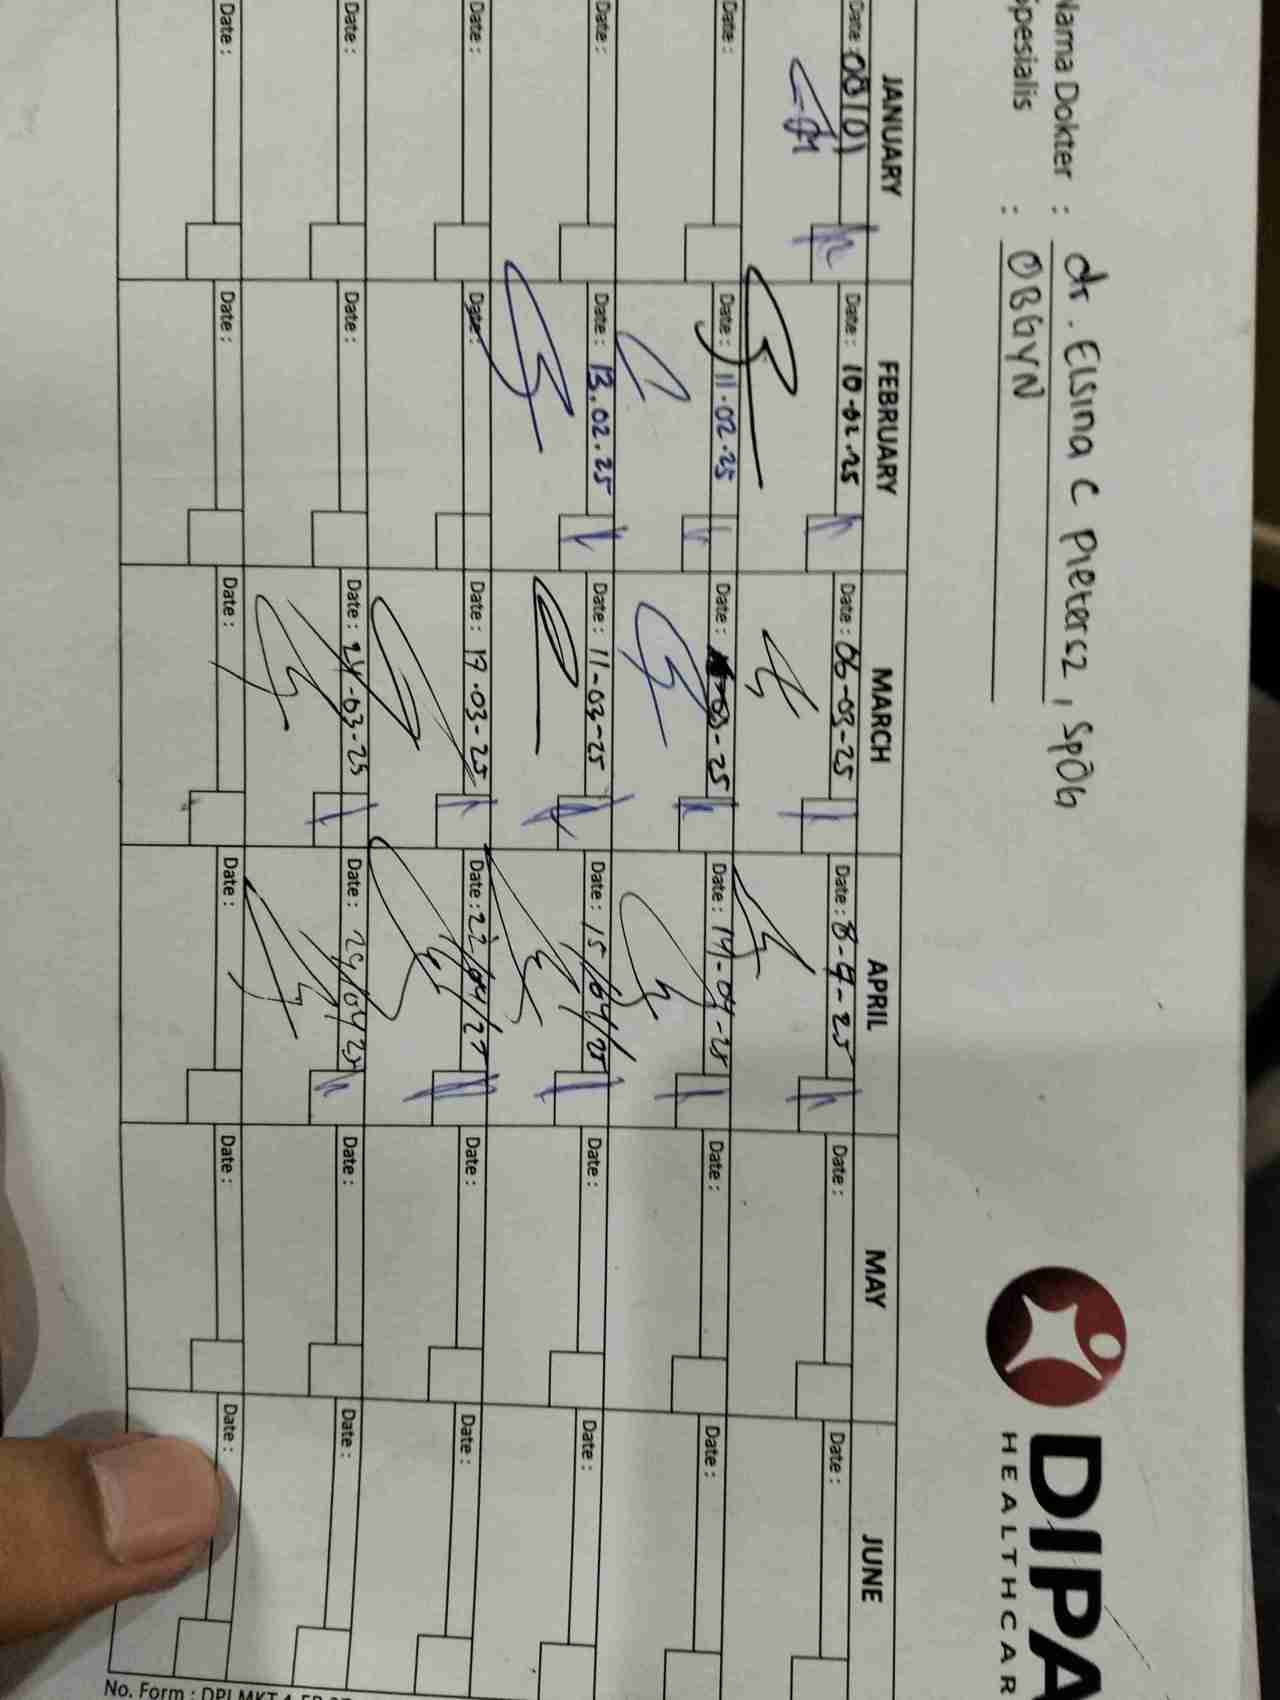 Nama Dokter : dr. Elsina C Pietersz, SpOG
Spesialis : OBGYN
DIPA
HEALTHCAR
JANUARY FEBRUARY MARCH APRIL MAY JUNE
Date: 08/01 Date: 10.02.25 Date: 06-03-25 Date: 8-4-25 Date: Date:
Date: Date: 11.02.25 Date: -03-25 Date: 14-04-25 Date: Date:
Date: Date: 13.02.25 Date: 11-03-25 Date: 15/04/25 Date: Date:
Date: Date: Date: 17.03-25 Date: 22/04/25 Date: Date:
Date: Date: Date: 24-03-25 Date: 29/04/25 Date: Date:
Date: Date: Date: Date: Date: Date:
No. Form :